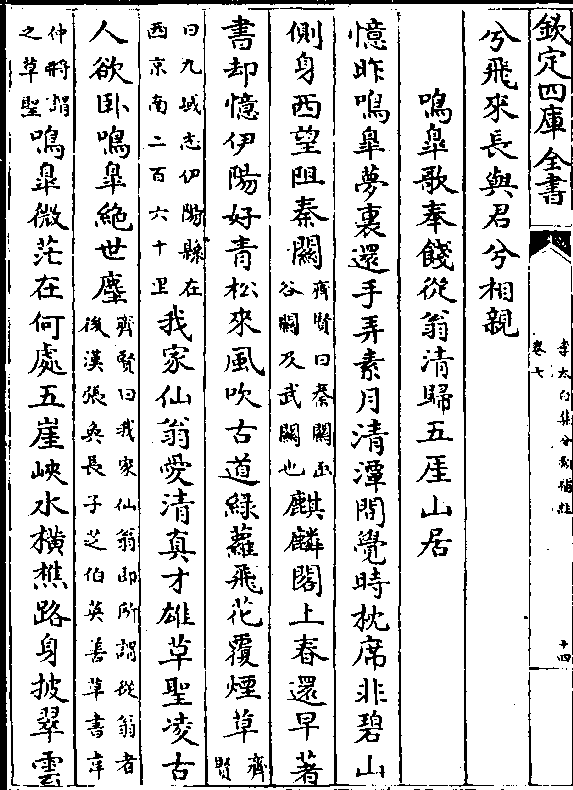 欽定四庫全書
李太白集分類補註
卷七
十四
兮飛來長與君兮相親
鳴臯歌奉餞從翁清歸五厓山居
憶昨鳴臯夢裏還手弄素月清潭間覺時枕席非碧山
側身西望阻秦關齊賢曰秦關函谷關及武關也麒麟閣上春還早著
書却憶伊陽好青松來風吹古道綠蘿飛花覆煙草齊賢
曰九域志伊陽縣在西京南二百六十里我家仙翁愛清真才雄草聖凌古
人欲卧鳴臯絶世塵齊賢曰我家仙翁即所謂從翁者後漢張奐長子芝伯英善草書韋
仲將謂之草聖鳴臯微茫在何處五崖峽水橫樵路身披翠雲